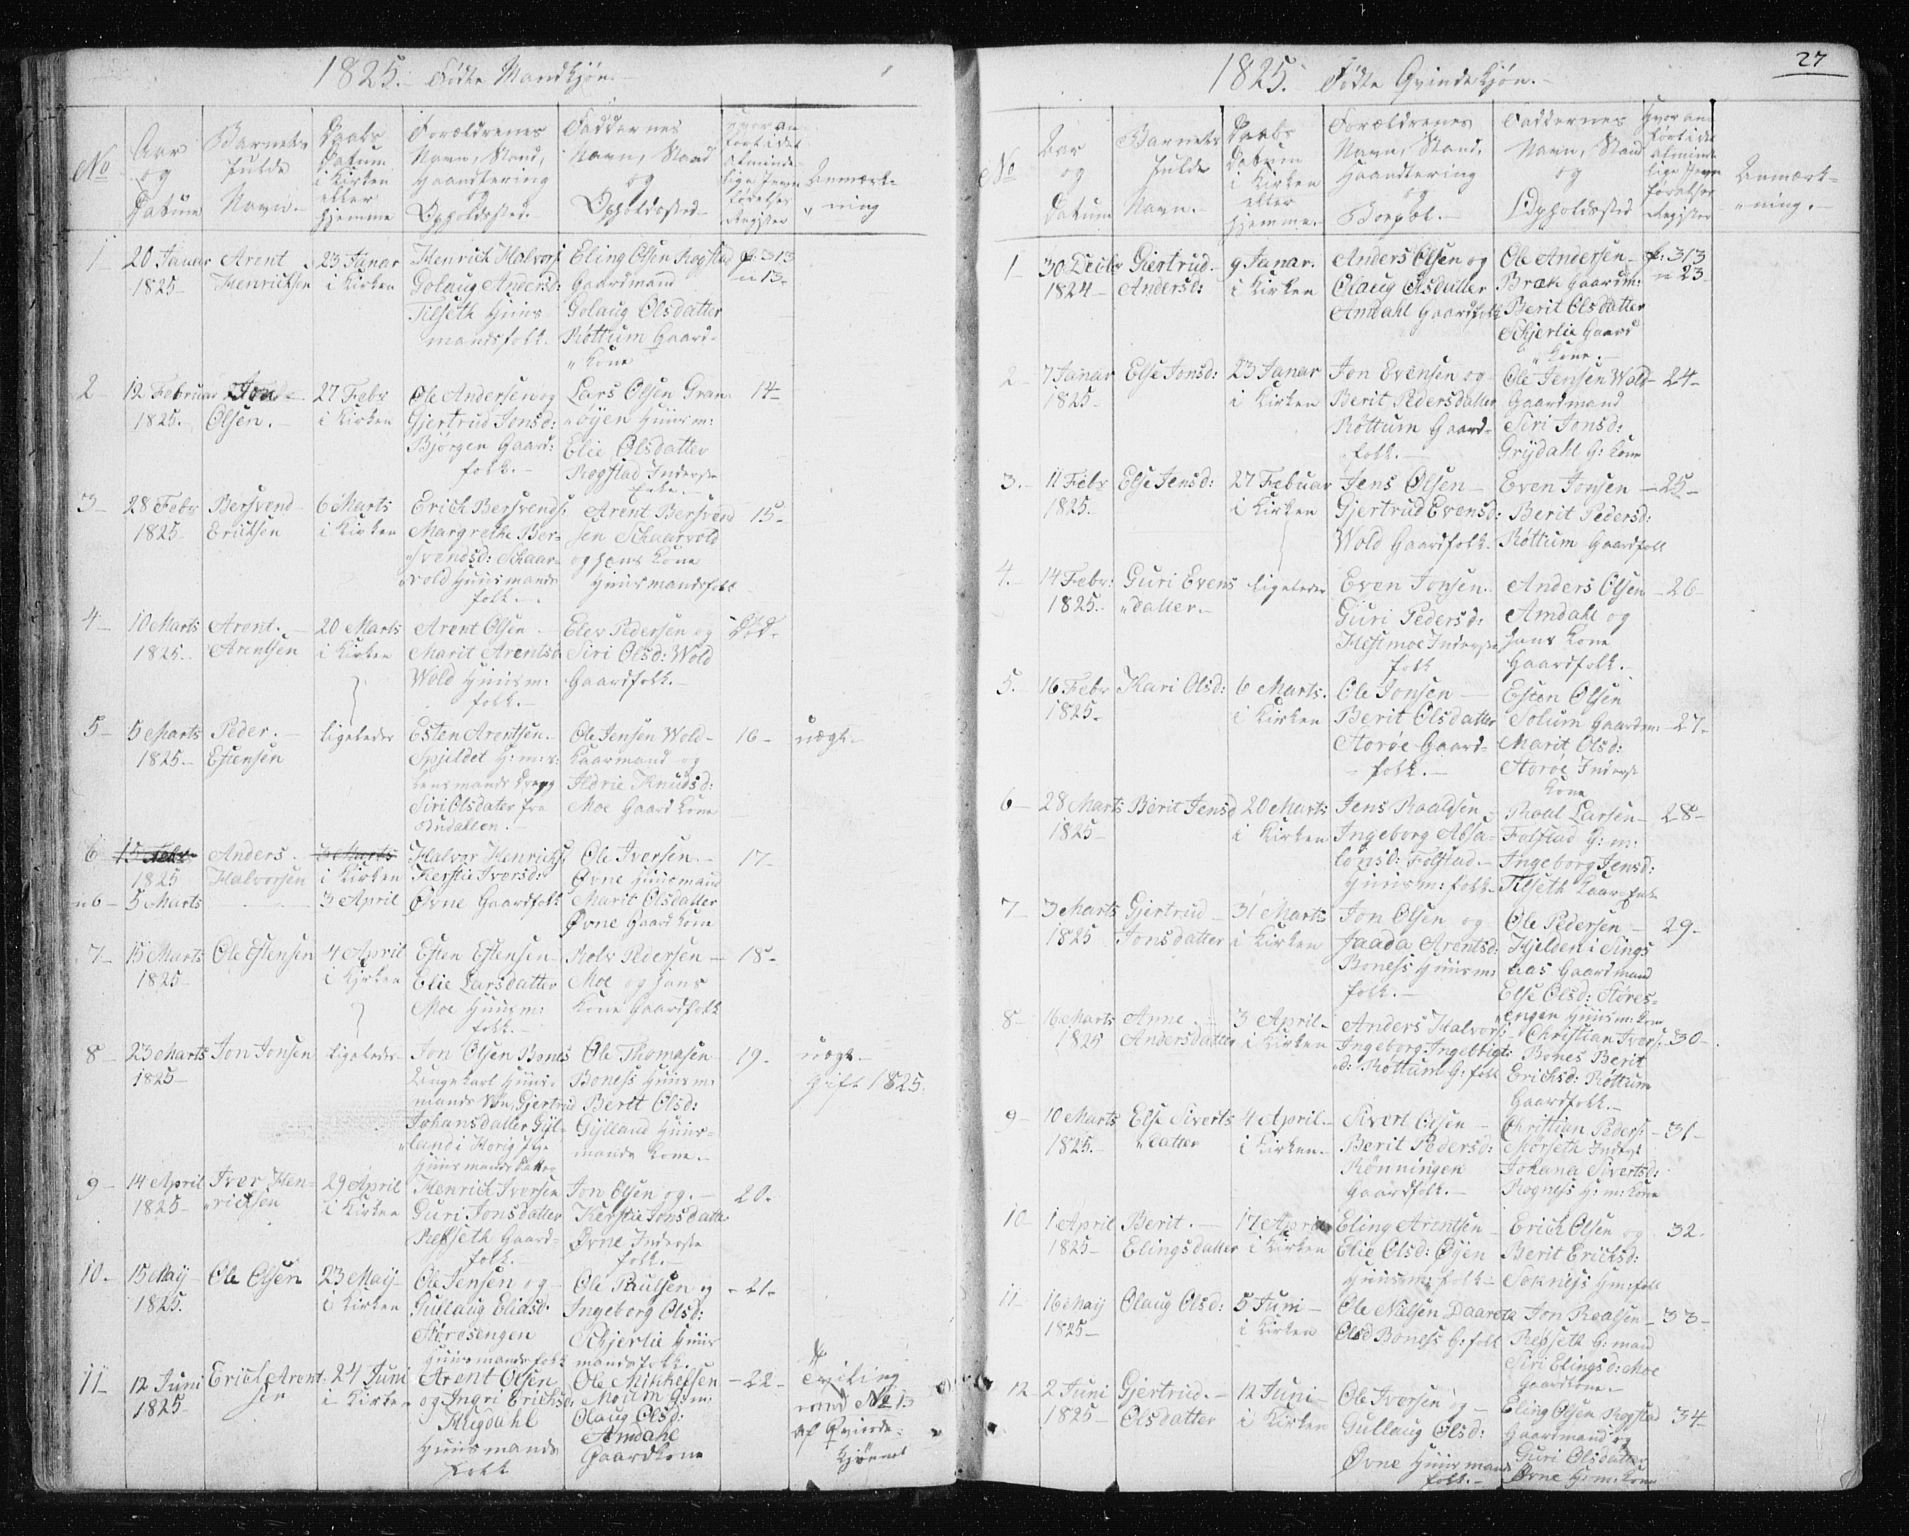 1825. Fødte Mandkjøn.
No
Aar
og
Datum
Barnets
fulde
Navn.
Daabs
Datum
i Kirken
eller
hjemme
Forældrenes
Navn, Stand,
Haandtering
og
Opholdssted.
Faddernes
Navn, Stand
og
Opholdssted
Hvor an-
ført i det
alminde-
lige Jevn-
førelses
Register
Anmærk-
ning
1
20 Januar
1825
Arent
Henricksen
23 Januar
i Kirken
Henrick Halvors:
Golaug Anders:
Tilseth Huus
mandsfolk.
Eling Olsen Rogstad
Gaardmand
Golaug Olsdatter
Røttum Gaard-
Kone
f: 313
n 13.
2
12 Februar
1825.
Jon
Olsen.
27 Febr
i Kirken
Ole Andersen og
Gjertrud Jonsd:
Bjørgen Gaard:
folk.
Lars Olsen Gran
øyen Huusm:
Elie Olsdatter
Rogstad Inderste
14
3
28 Febr
1825
Bersvend
Ericksen
6 Marts
i Kirken
Erick Bersvends:
Margrethe Ber-
svendsd: Schaar-
vold Huusmands
folk.
Arent Bersvend
sen Schaarvold
og hans Kone
Huusmandsfolk
15.
4
10 Marts
1825.
Arent.
Arentsen
20 Marts
i Kirken
Arent Olsen
Marit Arentsd.
Wold Huusm:
folk.
Elev Pedersen og
Siri Olsd: Wold
Gaardfolk.
Død.
5
5 Marts
1825.
Peder.
Estensen
ligeledes
Esten Arentsen.
Spjeldet
Siri Olsdater fra
Ole Jensen Wold
Gaarmand og
Ildrie Knudsd:
Moe Gaard Kone
16
uægte.
6
15 Febr
1825
n 6
5 Marts
Anders.
Halvorsen
6 Marts
i Kirken
3 April
Halvor Henricks:
Kerstie Iversd:
Øvne Gaardfolk
Ole Iversen.
Øvne Huusmand
Marit Olsdatter
Øvne Gaard Kone
17
7
15 Marts
1825
Ole Estensen
4 April
i Kirken
Esten Estensen
Elie Larsdatter
Moe Huusm:
folk.
Rolv Pedersen
Moe og hans
Kone Gaardfolk
18
8
23 Marts
1825
Jon Jonsen
ligeledes
Jon Olsen Bones
Ungekarl Huus-
mands Søn, Gjertrud
Johansdatter Gyl-
land i Horig
Huusmands Datter
Ole Thomasen
Boness Huusm:
Berit Olsd:
Gylland Huus-
mands Kone.
19.
uægte
Gift 1825.
9
14 April
1825
Iver Hen-
ricksen
29 April
i Kirken
Henrick Iversen
Guri Jonsdatter
Rekseth Gaard-
folk.
Jon Olsen og.
Kerstie Jonsdatter
Øvne Inderste
folk.
20.
10.
15 May
1825.
Ole Olsen
23 May
i Kirken
Ole Jensen og
Gulaug Eliasd.
Størdsengen
Huusmandsfolk
Ole Paulsen og
Ingeborg Olsd:
Schjerlie Huus
mandsfolk.
21.
11
12 Juni
1825
Erick Arent
sen
24 Juni
i Kirken
Arent Olsen
og Ingri Ericksd:
Migdahl
Huusmands
folk
Ole Mikkelsen
Moium G:m:
Olaug Olsd:
Amdahl
Gaardkone
22
Tviling
med No 13
af Qvinde-
kjønnet
27
1825. Fødte Qvindekjøn.
No
Aar
og
Datum
Barnets
fulde
Navn.
Daabs
Datum
i Kirken
eller
hjemme.
Forældrenes
Navn, Stand,
Haandtering
og
Bopæl.
Faddernes
Navn, Stand
og
Opholdssted
Hvor an-
ført i det
almind-
lige Jevn
førelses
Register
Anmærk-
ning.
1
30 Decbr
1824
Giertrud
Andersd:
9 Januar.
i Kirken
Anders Olsen og
Olaug Olsdatter
Amdahl Gaardfolk
Ole Andersen
Bræk Gaardm:
Berit Olsdatter
Schjerlie Gaard
Kone.
f: 313
n 23
2
7 Januar
1825
Else Jonsd:
23 Januar
i Kirken
Jon Evensen og
Berit Pedersdatter
Røttum Gaard-
folk.
Ole Jensen Wold
Gaardmand
Siri Jonsd:
Grydahl G: Kone
24
3.
11 Febr
1825.
Else Jensd:
27 Februar
i Kirken
Jens Olsen
Gjertrud Evensd:
Wold Gaardfolk.
Even Jonsen
Berit Pedersd:
Røttum Gaardfolk
25
4.
14 Febr:
1825.
Guri Evens
datter.
ligeledes
Even Jonsen.
Guri Pedersd:
Hestmoe Inderste
folk
Anders Olsen
Amdahl og
hans Kone
Gaardfolk.
26
5.
16 Febr
1825.
Kari Olsd:
6 Marts.
i Kirken
Ole Jonsen
Berit Olsdatter
Storøe Gaard-
folk.
Esten Olsen
Solum Gaardm:
Marit Olsd:
Storøe Inderst
Kone
27.
6
28 Marts
1825
Berit Jensd
20 Marts
i Kirken
Jens Roaldsen
Ingeborg Absa-
lonsd: Folstad.
Huusm: folk.
Roal Larsen
Folstad G:m:
Ingeborg Jensd:
Tilseth
28
7
3 Marts
1825
Gjertrud
Jonsdatter
31 Marts
i Kirken
Jon Olsen og
Jaada Arentsd:
Boness Huusm:
folk.
Ole Pedersen
Hjelden i Sings
aas Gaardmand
Else Olsd: Støres-
engen Huusm: Kone
29.
8
16 Marts
1825
Anne.
Andersdatter
3 April
i Kirken
Anders Halvors:
Ingeborg Ingebrigt
d: Røttum G: folk
Christian Ivers:
Bones Berit
Ericksd: Røttum
Gaardfolk.
30
9
10 Marts
1825.
Else Siverts
datter
4 April
i Kirken
Sivert Olsen
Berit Pedersd:
Rønningen
Gaardfolk.
Christian Peders:
Morseth Inderst
Johana Sivertsd:
Rogness H:m: Kone
31
10
1 April
1825
Berit.
Elingsdatter
17 April
i Kirken
Eling Arentsen
Elie Olsd: Øyen
Huusm: folk
Erick Olsen og
Berit Ericksd:
Sokness Hm: folk
32.
11
16 May
1825
Olaug Olsd:
5 Juni
i Kirken
Ole Nielsen Daarete
Olsd Boness G: folk
Jon Roalsen
Rekseth G:mand
Siri Elingsd: Moe
Gaardkone.
33
12
2 Juni
1825
Gjertrud.
Olsdatter
12 Juni
i Kirken
Ole Iversen og
Gullaug Olsd:
Øvne Huusmands
folk.
Eling Olsen Rogstad
Gaardmand og
Guri Olsdatter
Øvne H:m: Kone
34